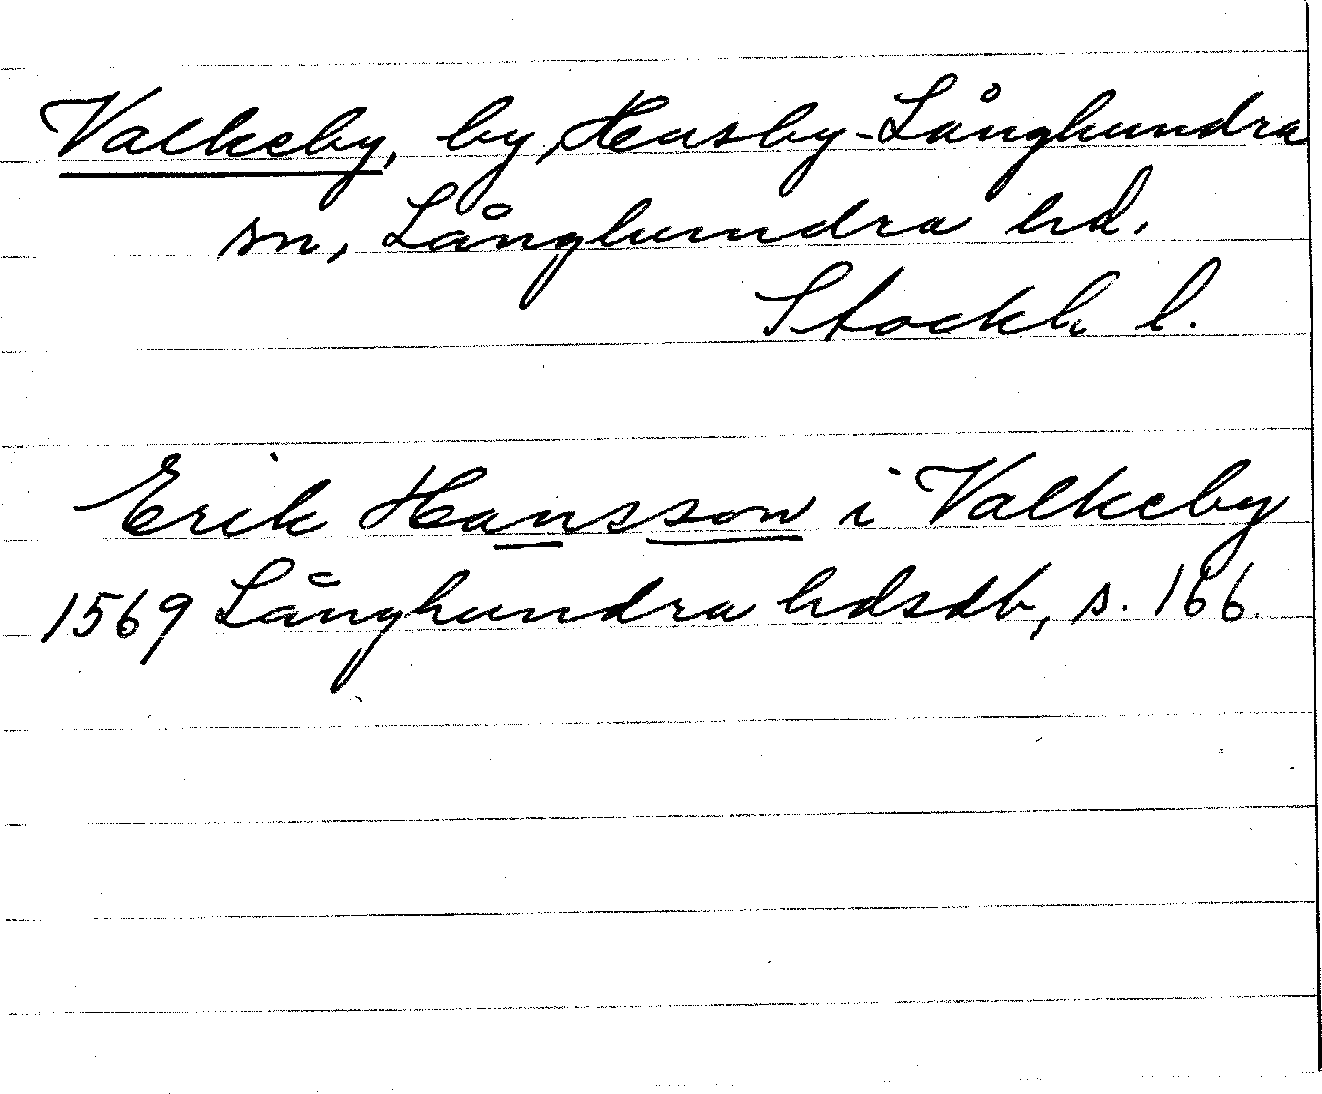 Valkeby, by, Husby-Långhundra
sn, Långhundra hd.
Stockh l.
Erik Hansson i Valkeby
1569 Långhundra hdsdb, s. 166.